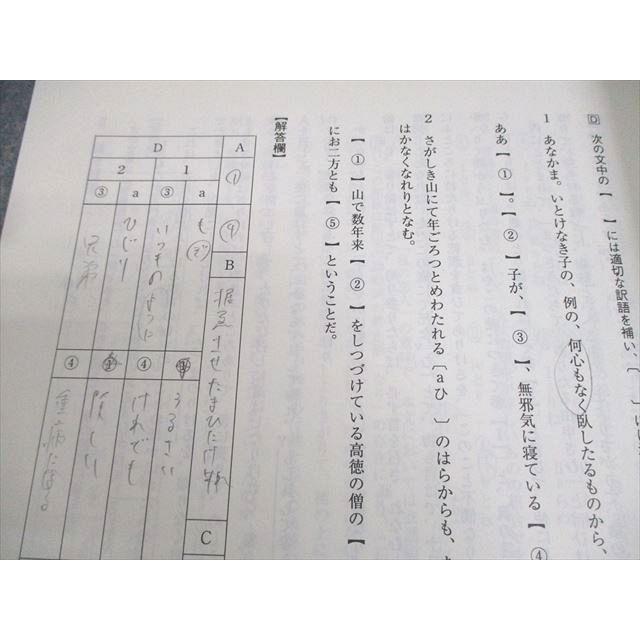 D 次の文中の【　】には適切な訳語を補い、〔　〕に
1 あなかま。いとけなき子の、例の、何心もなく臥したるものから、
ああ【 ① 】。【 ② 】子が、【 ③ 】、無邪気に寝ている【 ④
2 さがしき山にて年ごろつとめわたれる〔a ひ　〕のはらからも、
はかなくなれりとなむ。
【 ① 】山で数年来【 ② 】をしつづけている高徳の僧の【
にお二方とも【 ⑤ 】ということだ。
【解答欄】
A ① ④
B させたまひたけれ
C
D
1 a もぞ ① うるさい
③ いつものように ④ けれども
2 a ひじり ① 険しい
③ 兄弟 ④ 重病になる